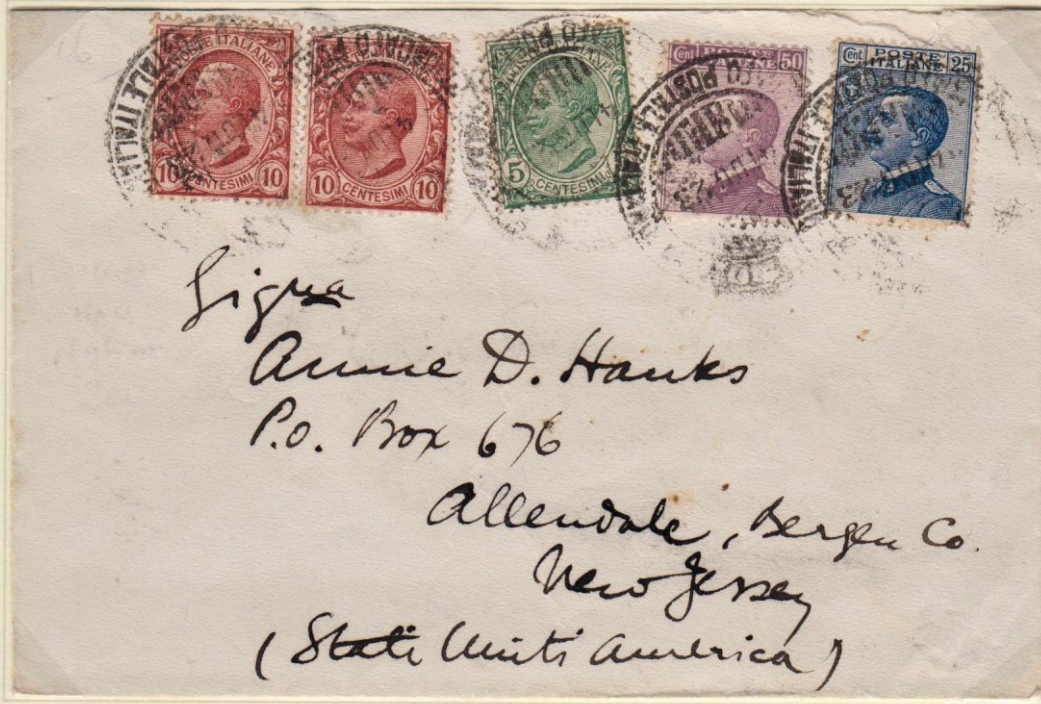 POSTE ITALIANE
10 CENTESIMI 10
POSTE ITALIANE
10 CENTESIMI 10
POSTE ITALIANE
5 CENTESIMI
Cent POSTE ITALIANE 50
Cent POSTE ITALIANE 25
POSTALE ITALIA
POSTALE ITALIANE
Signa
Annie D. Hanks
P.O. Box 676
Allendale, Bergen Co.
New Jersey
(Stati Uniti America)